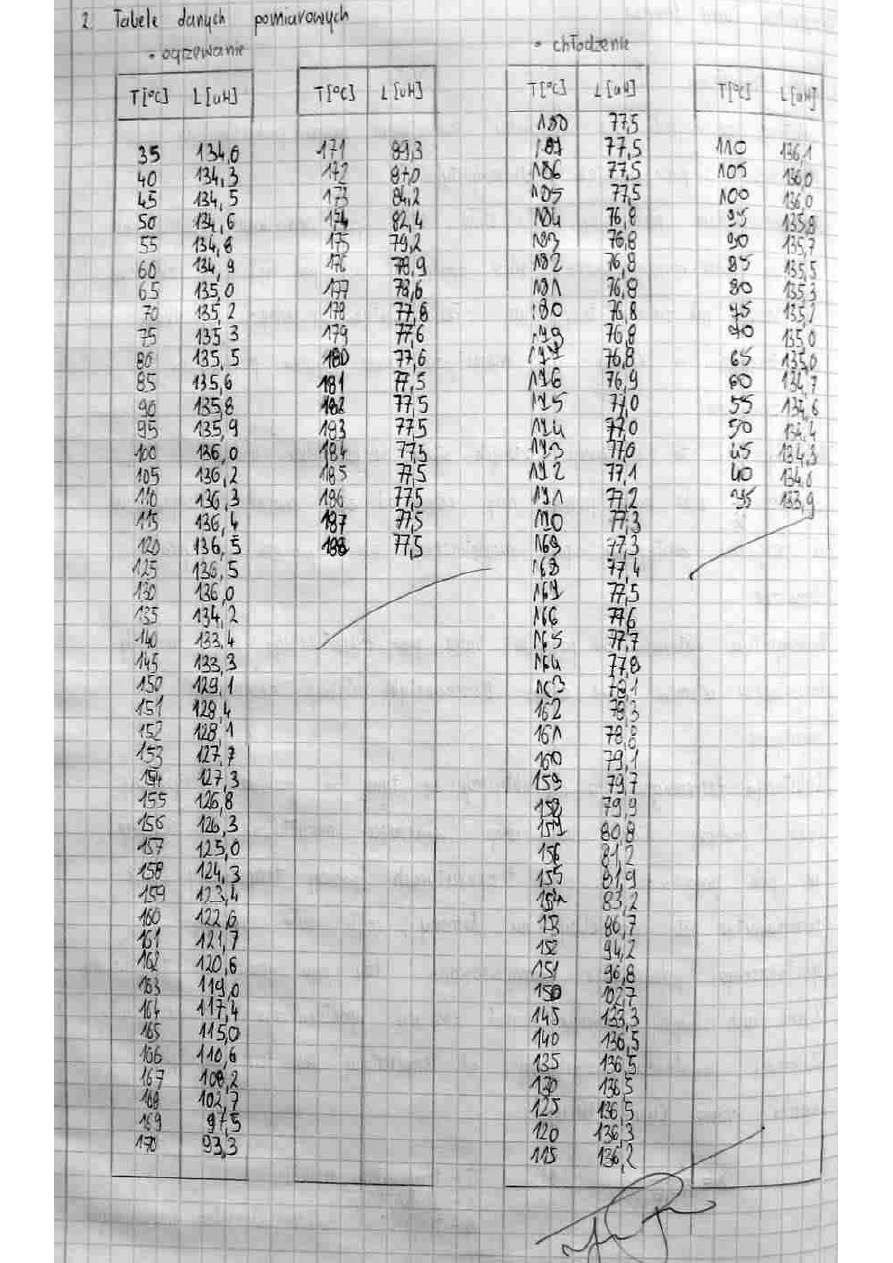 2. Tabele danych pomiarowych
• ogrzewanie
• chłodzenie
T[°C] L[uH] T[°C] L[uH] T[°C] L[uH] T[°C] L[uH]
77,5
35 134,0 171 89,3 77,5 110 136,1
40 134,3 172 87,0 186 77,5 105 136,0
45 134,5 173 84,2 185 77,5 100 136,0
50 134,6 174 82,4 184 76,8 95 135,8
55 134,8 175 79,2 183 76,8 90 135,7
60 134,9 176 78,9 182 76,8 85 135,5
65 135,0 177 78,6 181 76,8 80 135,3
70 135,2 178 77,8 180 76,8 75 135,2
75 135,3 179 77,6 179 76,8 70 135,0
80 135,5 180 77,6 177 76,8 65 135,0
85 135,6 181 77,5 176 76,9 60 134,7
90 135,8 182 77,5 175 77,0 55 134,6
95 135,9 183 77,5 174 77,0 50 134,4
100 136,0 184 77,5 173 77,0 45 134,3
105 136,2 185 77,5 172 77,1 40 134,0
110 136,3 186 77,5 171 77,2 35 133,9
115 136,4 187 77,5 170 77,3
120 136,5 188 77,5 169 77,3
125 136,5 168 77,4
130 136,0 167 77,5
135 134,2 166 77,6
140 133,4 165 77,7
145 133,3 164 77,8
150 129,1 163 78,1
151 128,4 162 78,3
152 128,1 161 78,8
153 127,7 160 79,1
154 127,3 159 79,7
155 126,8 158 79,9
156 126,3 157 80,8
157 125,0 156 81,2
158 124,3 155 81,9
159 123,4 154 83,2
160 122,6 153 86,7
161 121,7 152 94,2
162 120,6 151 96,8
163 119,0 150 102,7
164 117,4 145 133,3
165 115,0 140 136,5
166 110,6 135 136,5
167 108,2 130 136,5
168 102,7 125 136,5
169 97,5 120 136,3
170 93,3 115 136,2